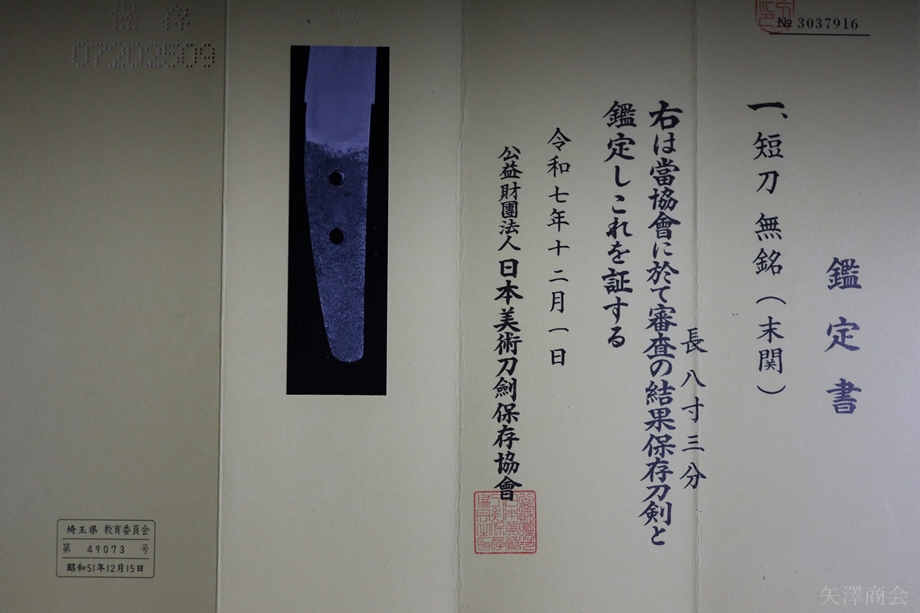 № 3037916
鑑定書
一、短刀 無銘（末関）
長八寸三分
右は當協會に於て審査の結果保存刀剣と
鑑定しこれを証する
令和七年十二月一日
公益財團法人 日本美術刀劍保存協會
保存
07202509
埼玉県 教育委員会
第 49073 号
昭和51年12月15日
矢澤商会